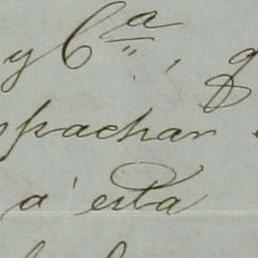 y Cª, q
spachar
a' esta